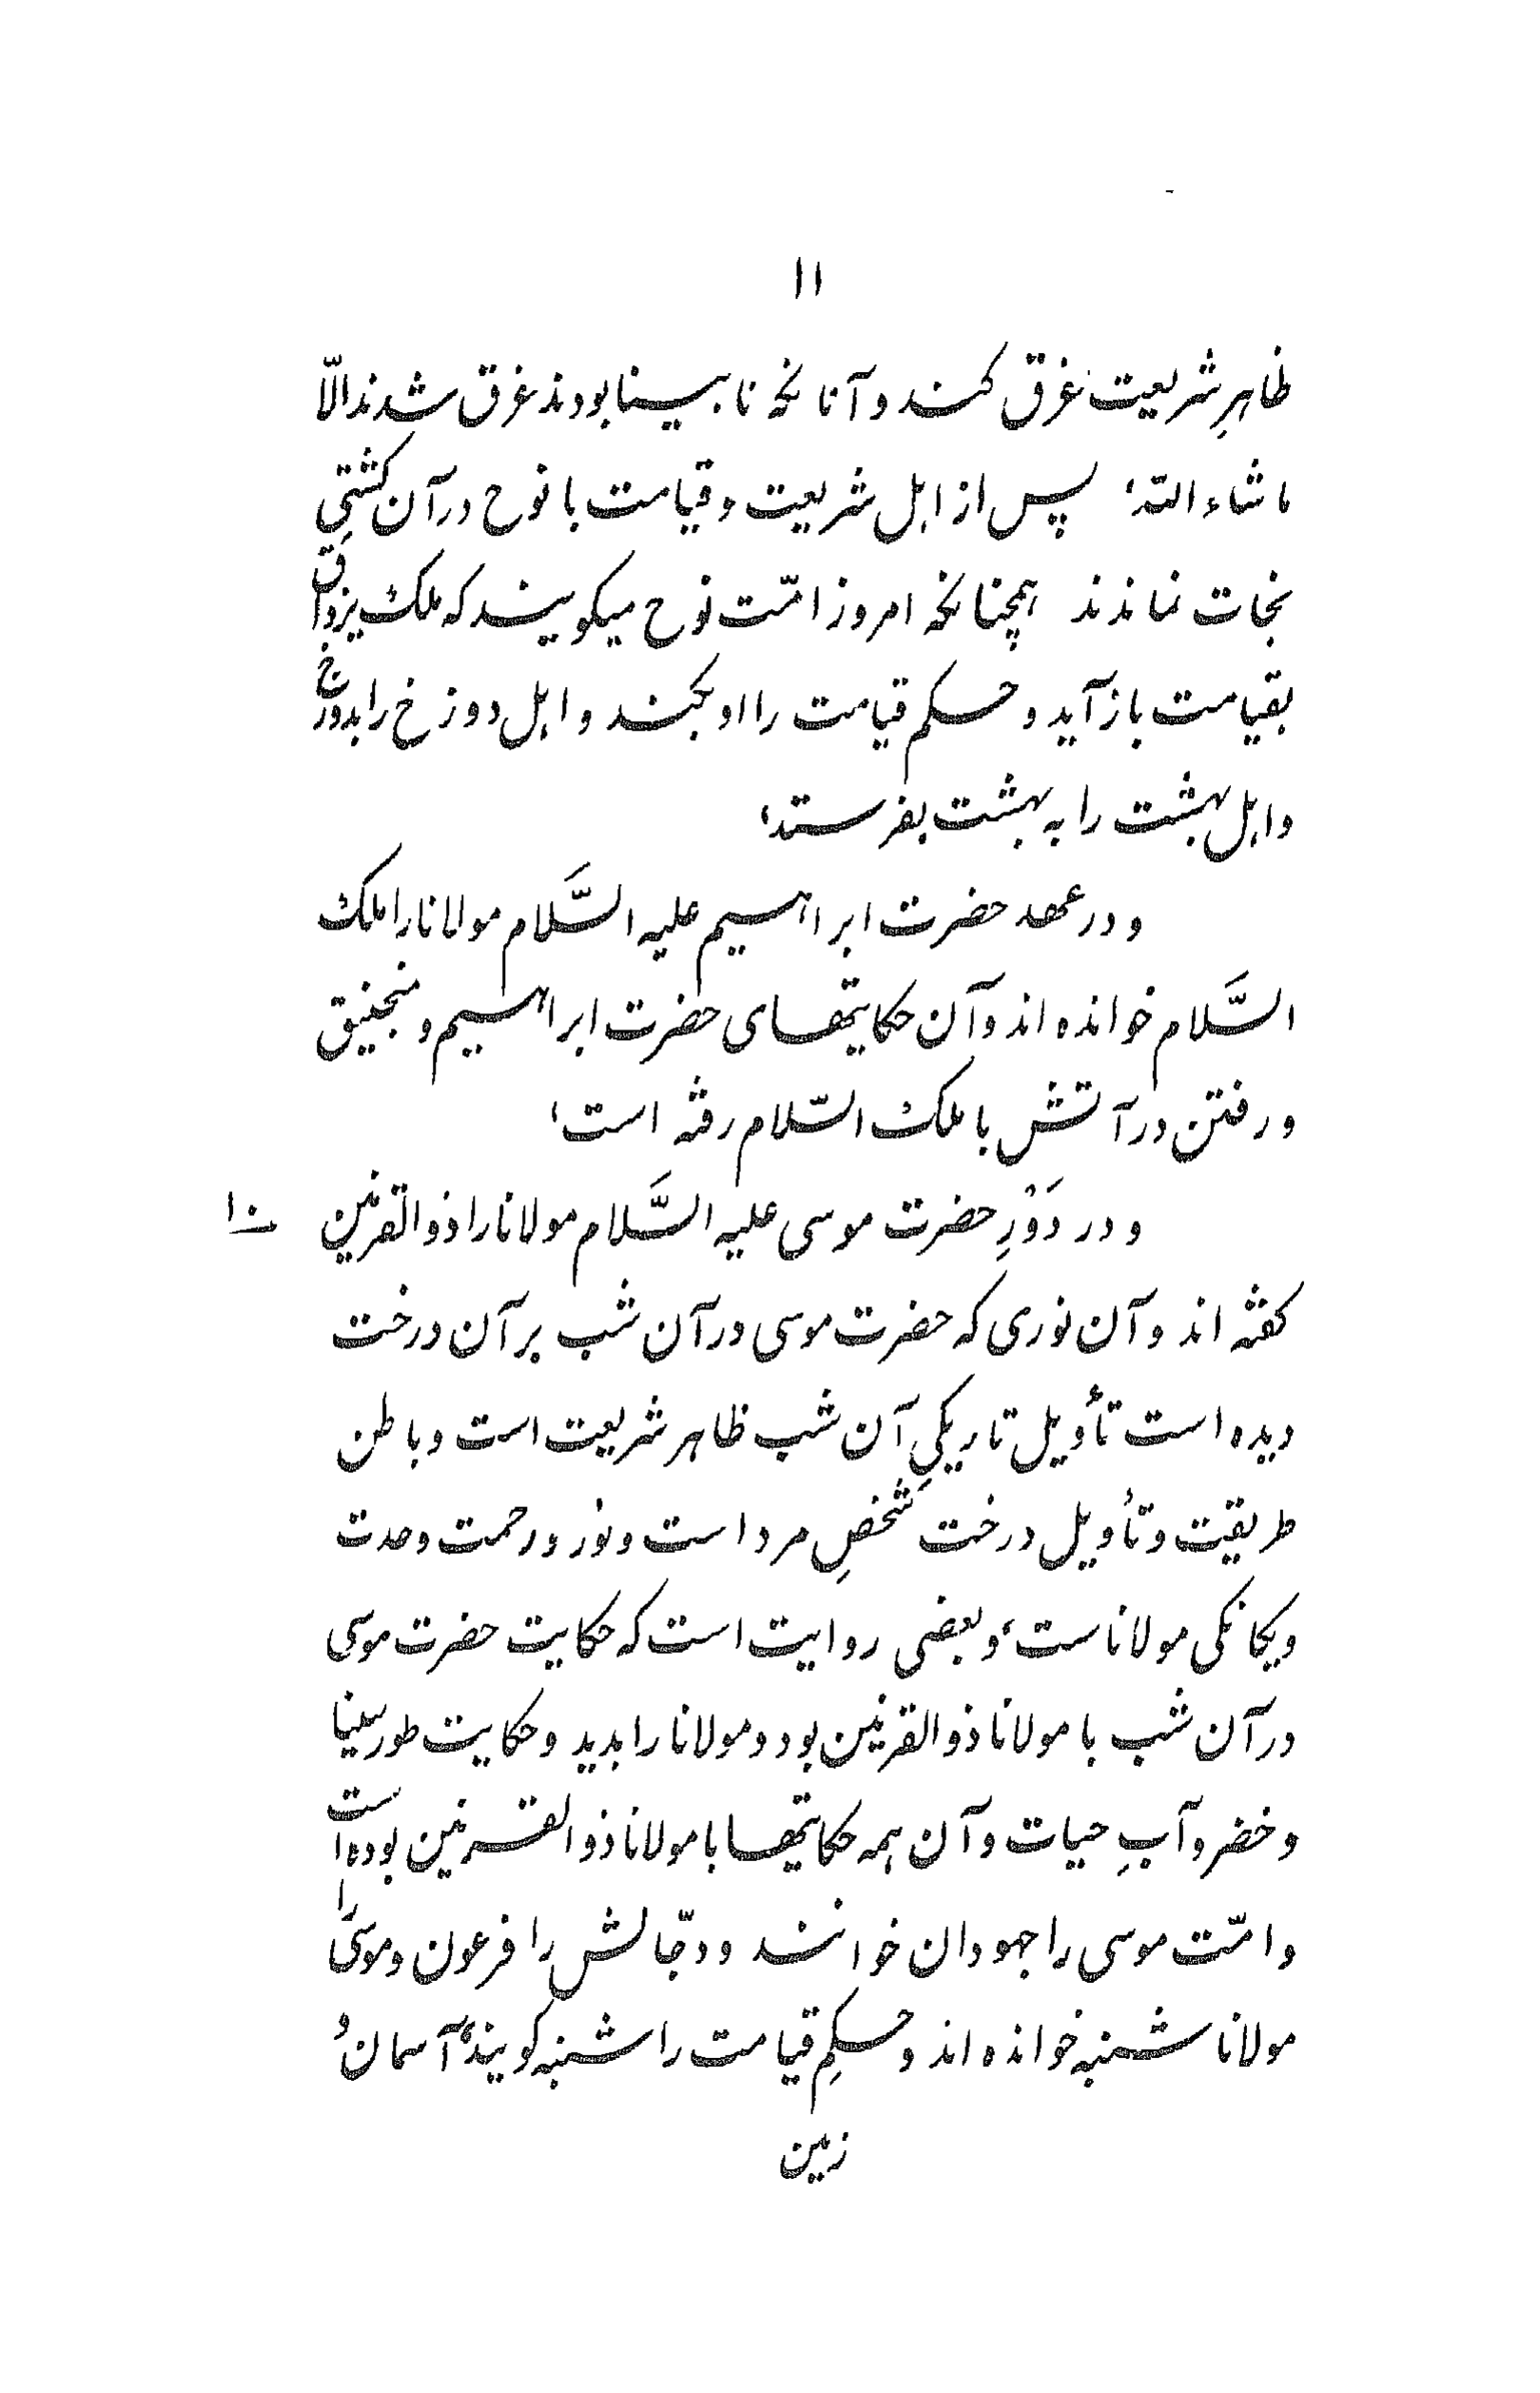 ۱۱
ظاهرِ شریعت غرق کند و آنانکه نابینا بودند غرق شدند الّا
ما شاء اللّه، پس از اهل شریعت و قیامت با نوح در آن کشتی
نجات نماندند همچنانکه امروز امّت نوح میگویند که ملک یزداق
بقیامت باز آید و حکم قیامت را او بکند و اهل دوزخ را بدوزخ
و اهل بهشت را به بهشت بفرستد،
و در عهد حضرت ابراهیم علیه السَّلام مولانا را ملک
السَّلام خوانده اند و آن حکایتهای حضرت ابراهیم و منجنیق
و رفتن در آتش با ملک السّلام رفته است،
و در دَوْرِ حضرت موسی علیه السَّلام مولانا را ذو القرنین ۱۰
گفته اند و آن نوری که حضرت موسی در آن شب بر آن درخت
دیده است تأویل تاریکیِ آن شب ظاهر شریعت است و باطن
طریقت و تأویل درخت شخصِ مرد است و نور و رحمت وحدت
و یگانگی مولاناست، و بعضی روایت است که حکایت حضرت موسی
در آن شب با مولانا ذو القرنین بود و مولانا را بدید و حکایت طور سینا
و خضر و آبِ حیات و آن همه حکایتها با مولانا ذو القرنین بوده است
و امّت موسی را جهودان خوانند و دجّالش را فرعون و موسی را
مولانا شنبه خوانده اند و حکمِ قیامت را شنبه گویند، آسمان و
زمین